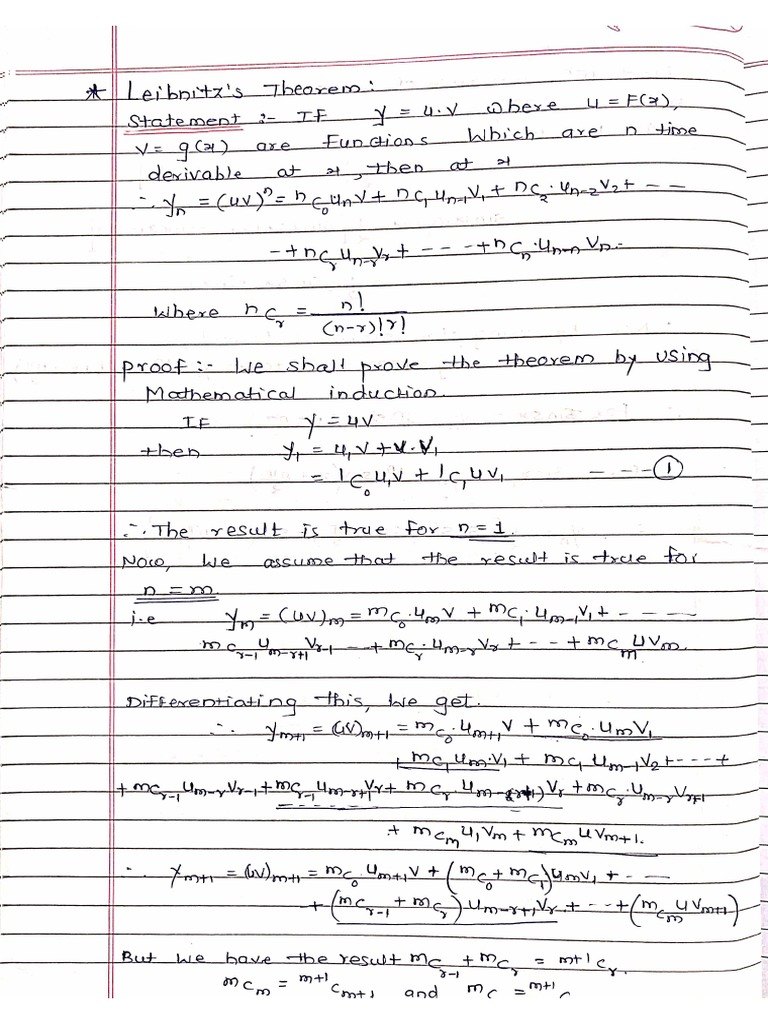 * Leibnitz's Theorem:
Statement :- IF y = u.v where u = F(x),
v = g(x) are Functions Which are n time
derivable at x, then at x
∴ yₙ = (uv)ⁿ = nC₀ uₙv + nC₁ uₙ₋₁v₁ + nC₂.uₙ₋₂v₂ + - -
- + nCᵣ uₙ₋ᵣvᵣ + - - - + nCₙ.uₙ₋ₙ vₙ.
Where nCᵣ = n! / (n-r)! r!
Proof :- We shall prove the theorem by using
Mathematical induction.
IF y = uv
then y₁ = u₁v + u.v₁
= 1C₀ u₁v + 1C₁ uv₁ - - - ①
∴ The result is true for n = 1.
Now, We assume that the result is true for
n = m.
i.e yₘ = (uv)ₘ = mC₀.uₘv + mC₁.uₘ₋₁v₁ + - - -
mCᵣ₋₁ uₘ₋ᵣ₊₁vᵣ₋₁ - - + mCᵣ.uₘ₋ᵣvᵣ + - - + mCₘ uvₘ.
Differentiating this, we get.
∴ yₘ₊₁ = (uv)ₘ₊₁ = mC₀.uₘ₊₁v + mC₀.uₘv₁
+ mC₁uₘ.v₁ + mC₁ uₘ₋₁v₂ + - - - +
+ mCᵣ₋₁uₘ₋ᵣvᵣ₋₁ + mCᵣ₋₁uₘ₋ᵣ₊₁vᵣ + mCᵣ.uₘ₋₍ᵣ₊₁₎vᵣ + mCᵣ.uₘ₋ᵣvᵣ₊₁
+ mCₘ u₁vₘ + mCₘ uvₘ₊₁.
∴ yₘ₊₁ = (uv)ₘ₊₁ = mC₀.uₘ₊₁v + (mC₀ + mC₁)uₘv₁ + - -
+ (mCᵣ₋₁ + mCᵣ)uₘ₋ᵣ₊₁vᵣ + - - + (mCₘ uvₘ₊₁)
But we have the result mCᵣ₋₁ + mCᵣ = m+1Cᵣ.
mCₘ = m+1Cₘ₊₁ and mC = m+1C